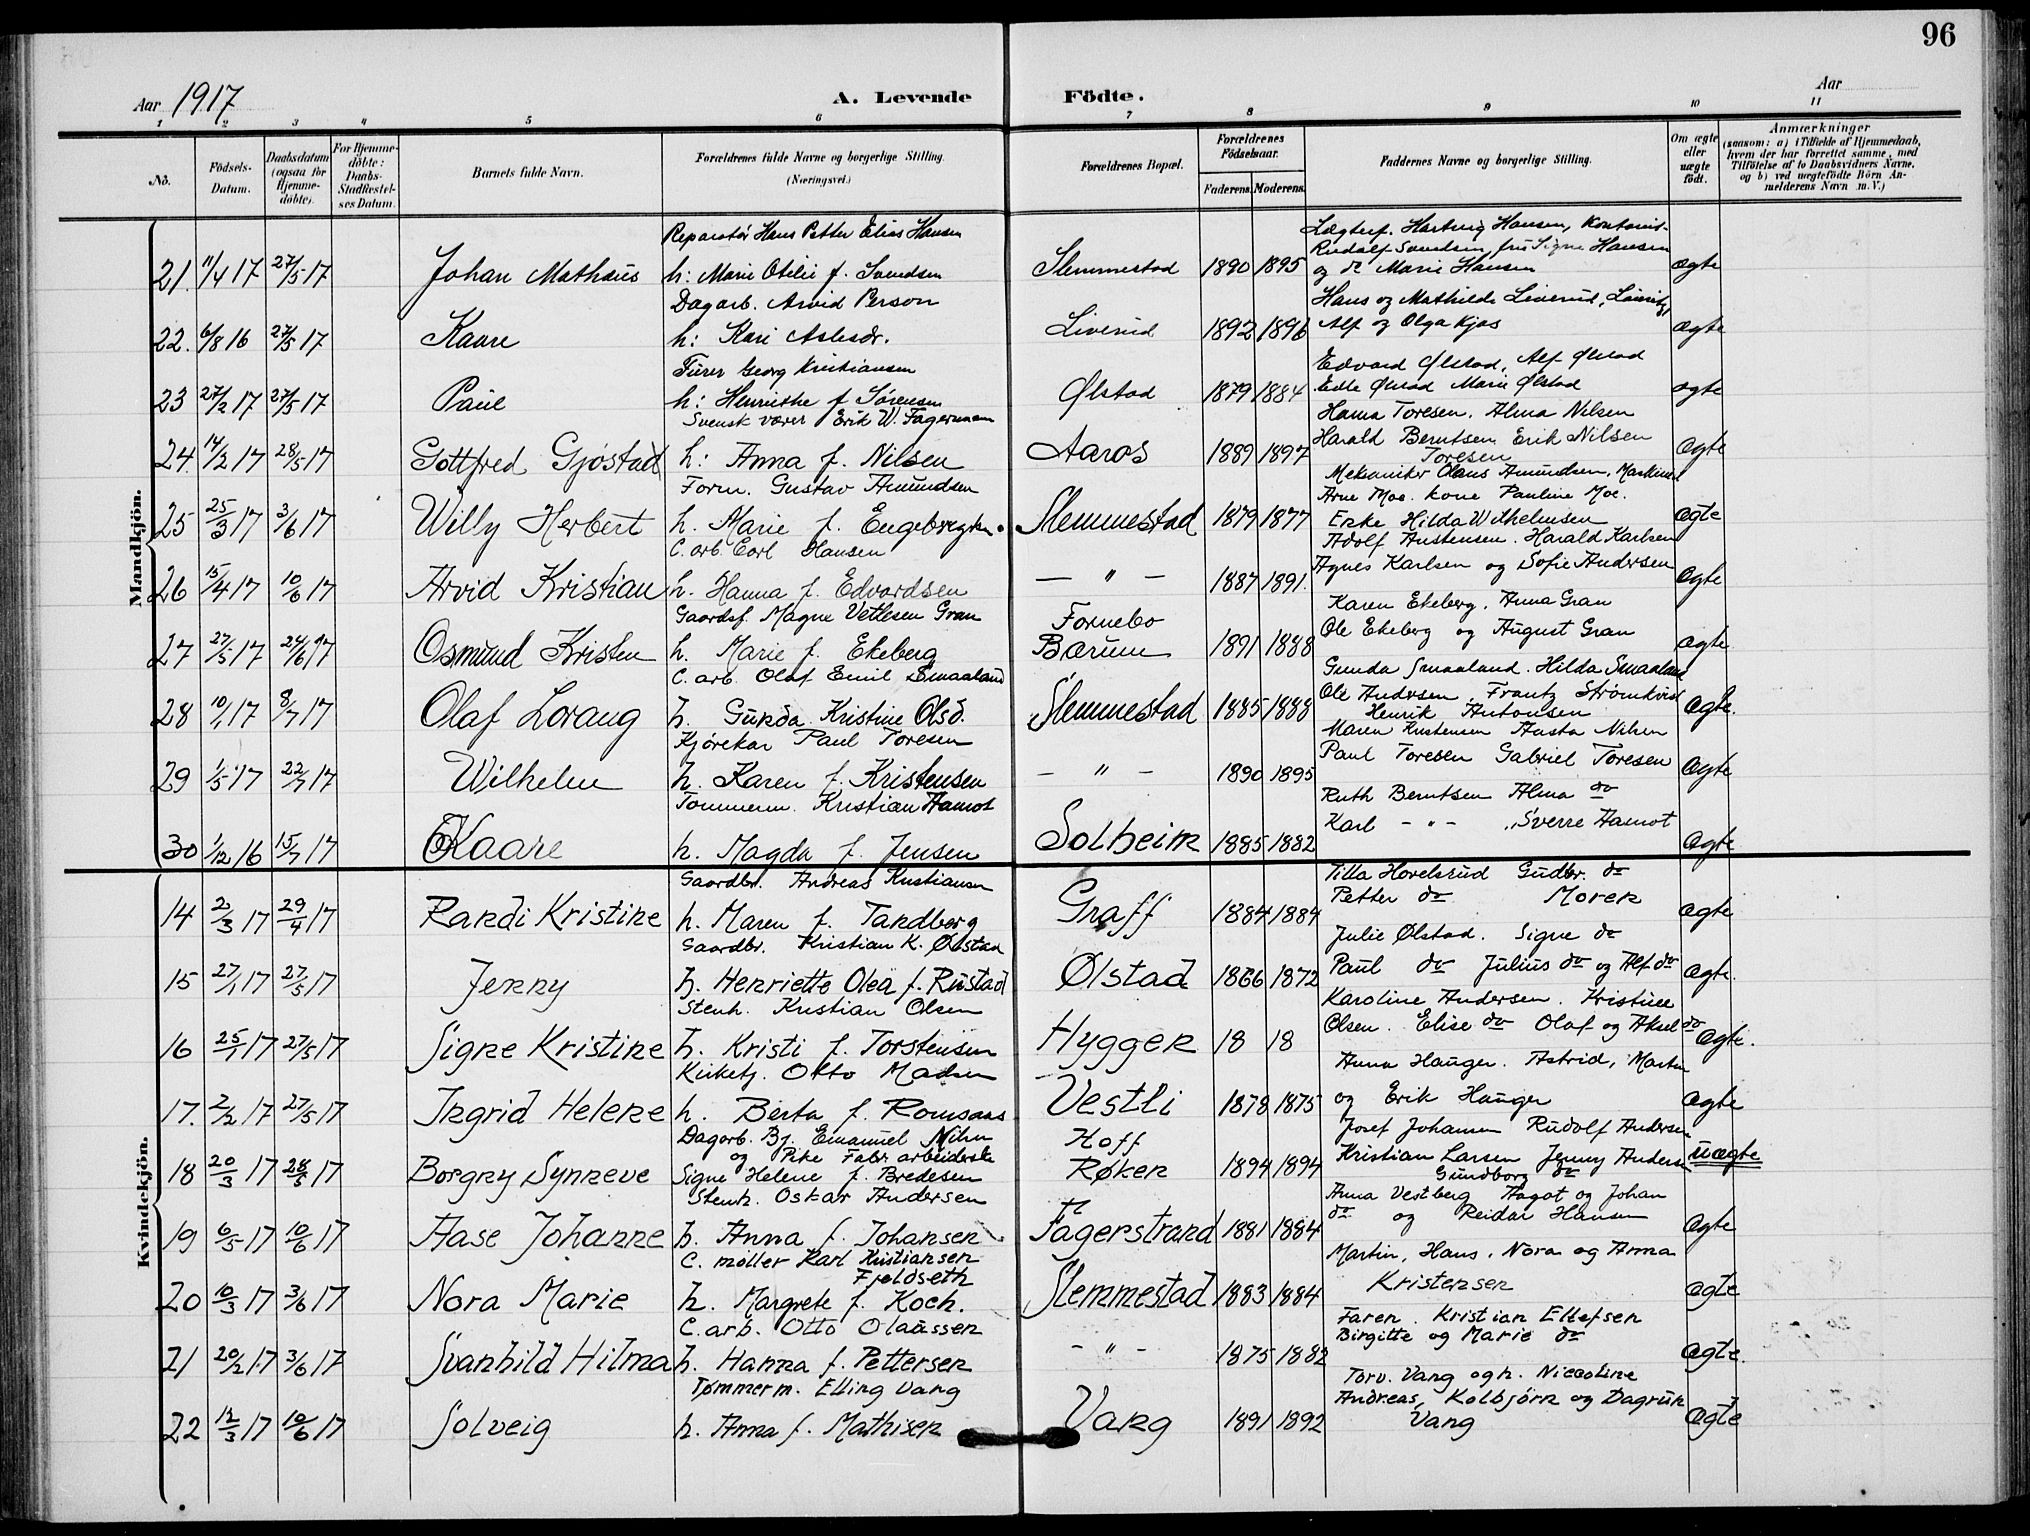 96
Aar 1917
A. Levende Födte.
Aar
1 2 3 4 5 6 7 8 9 10 11
No.
Födsels-Datum.
Daabsdatum (ogsaa for Hjemme-döbte).
For Hjemme-döbte: Daabs-Stadfæstel-ses Datum.
Barnets fulde Navn.
Forældrenes fulde Navne og borgerlige Stilling. (Næringsvei.)
Forældrenes Bopæl.
Forældrenes Födselsaar.
Faderens. Moderens.
Faddernes Navne og borgerlige Stilling.
Om ægte eller uægte födt.
Anmærkninger
(saasom: a) i Tilfælde af Hjemmedaab, hvem der har forrettet samme, med Tilföielse af to Daabsvidners Navne, og b) ved uægtefödte Börn An-melderens Navn m.V.)
Mandkjön.
Reparatør Hans Petter Elias Hansen
21. 11/4 17 27/5 17 Johan Mathæus h: Marie Otilie f. Svendsen Slemmestad 1890 1895 Hartvig Hansen, Rudolf Svendsen, fru Signe Hansen og Marie Hansen ægte
Dagarb. Arvid Person
22. 6/8 16 27/5 17 Kaare h: Kari Aslesdr. Liverud 1892 1896 Hans og Mathilde Liverud, Alf og Olga Kjos ægte
Georg Kristiansen
23 27/2 17 27/5 17 Paul h: Henriette f. Sørensen Ølstad 1879 1884 Edvard Ølstad, Alf Ølstad Marie Ølstad ægte
Svensk Erik W. Fagerman
24. 14/2 17 28/5 17 Gottfred Gjøstad h: Anna f. Nilsen Aaros 1889 1897 Hanna Toresen, Alma Nilsen Harald Berntsen Erik Nilsen Toresen ægte
Form. Gustav Amundsen
25 25/3 17 3/6 17 Willy Herbert h. Marie f. Slemmestad 1879 1877 Mekaniker Olaus Amundsen, Arne Moe. kone Pauline Moe. Enke Hilda Wilhelmsen ægte
C. arb. Carl Hansen
26 15/4 17 10/6 17 Arvid Kristian h. Hanna f. Edvardsen — " — 1887 1891. Adolf Austensen. Harald Karlsen Agnes Karlsen og Sofie Andersen ægte
Gaardsf. Magne Vetlesen Gran
27 27/5 17 24/6 17 Osmund Kristen h. Marie f. Ekeberg Fornebo Bærum 1891 1888 Karen Ekeberg. Anna Gran Ole Ekeberg og August Gran ægte
C. arb. Olaf Emil Smaaland
28 10/1 17 8/7 17 Olaf Lorang h. Gunda Kristine Olsd. Slemmestad 1885 1888 Gunda Smaaland. Hilda Smaaland Ole Andersen. Frantz Strømkvist Henrik Antonsen ægte.
Kjørekar Paul Toresen
29 1/5 17 22/7 17 Wilhelm h. Karen f. Kristensen — " — 1890 1895 Maren Kristensen Aasta Nilsen Paul Toresen Gabriel Toresen ægte
Tømmerm. Kristian Aamot
30 1/12 16 15/7 17 Kaare h. Magda f. Jensen Solheim 1885 1882 Ruth Berntsen Alma do Karl — " — Sverre Aamot ægte
Kvindekjön.
Gaardbr. Andreas Kristiansen
14 2/3 17 29/4 17 Randi Kristine h. Maren f. Tandberg Graff 1884 1884 Tilla Hovelsrud Gudbr. do Petter do Moren ægte
Gaardbr. Kristian K. Ølstad
15 27/1 17 27/5 17 Jenny h. Henriette Olea f. Rustad Ølstad 1866 1872 Julie Ølstad. Signe do Paul do Julius do og Alf do ægte.
Stenh. Kristian Olsen
16 25/1 17 27/5 17 Signe Kristine h. Kristi f. Torstensen Hyggen 18 18 Karoline Andersen. Kristine Olsen. Elise do Olaf og Aksel do ægte.
Kirketj. Otto Madsen
17. 2/2 17 27/5 17 Ingrid Helene h. Berta f. Romsaas Vestli 1878 1875 Anna Hauger. Astrid, Martin og Erik Hauger ægte
Dagarb. Bj. Emanuel Nilsen
18 20/3 17 28/5 17 Borgny Synneve og Pike Fabr. arbeiderske Signe Helene f. Bredesen Hoff Røken 1894 1894 Josef Johansen Rudolf Andersen Kristian Larsen Jenny Andersen Gundborg do uægte
Stenh. Oskar Andersen
19 6/5 17 10/6 17 Aase Johanne h. Anna f. Johansen Fagerstrand 1881 1884 Anna Vestberg Aagot og Johan do og Reidar Hansen ægte
C. møller Karl Kristiansen Fjeldseth
20 10/3 17 3/6 17 Nora Marie h. Margrete f. Koch. Slemmestad 1883 1884 Martin, Hans, Nora og Anna Kristensen ægte
C. arb. Otto Olaussen
21 20/2 17 3/6 17 Svanhild Hilma h. Hanna f. Pettersen — " — 1875 1882 Faren. Kristian Ellefsen Birgitte og Marie do ægte.
Tømmerm. Elling Vang
22 12/3 17 10/6 17 Solveig h. Anna f. Mathisen Vang 1891 1892 Torv. Vang og h. Nicoline Andreas, Kolbjørn og Dagrun Vang ægte